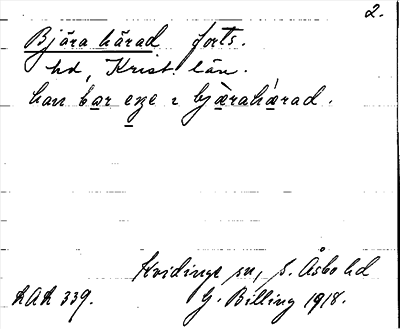 2.
Bjära härad forts.
hd, Krist. län.
han bar eze i bjärahärad.
Kvidinge sn, S. Åsbo hd
LAL 339. G. Billing 1918.